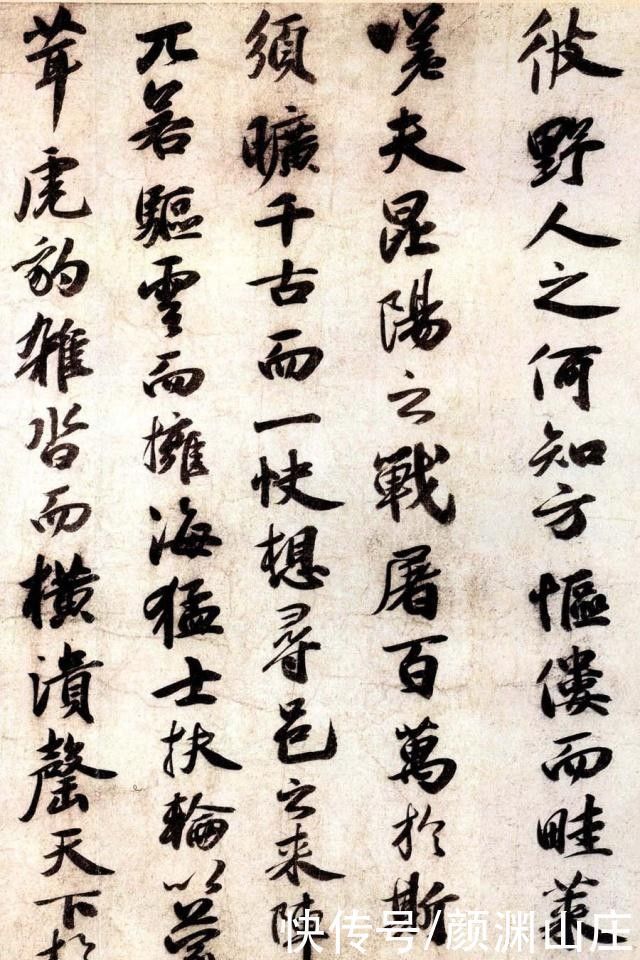 彼野人之何知方傴僂而畦菜
嗟夫昆陽之戰屠百萬於斯
須曠千古而一快想尋邑之来陣
兀若驅雲而擁海猛士扶輪以蒙
茸虎豹雜沓而橫潰罄天下於
快传号/颜渊山庄